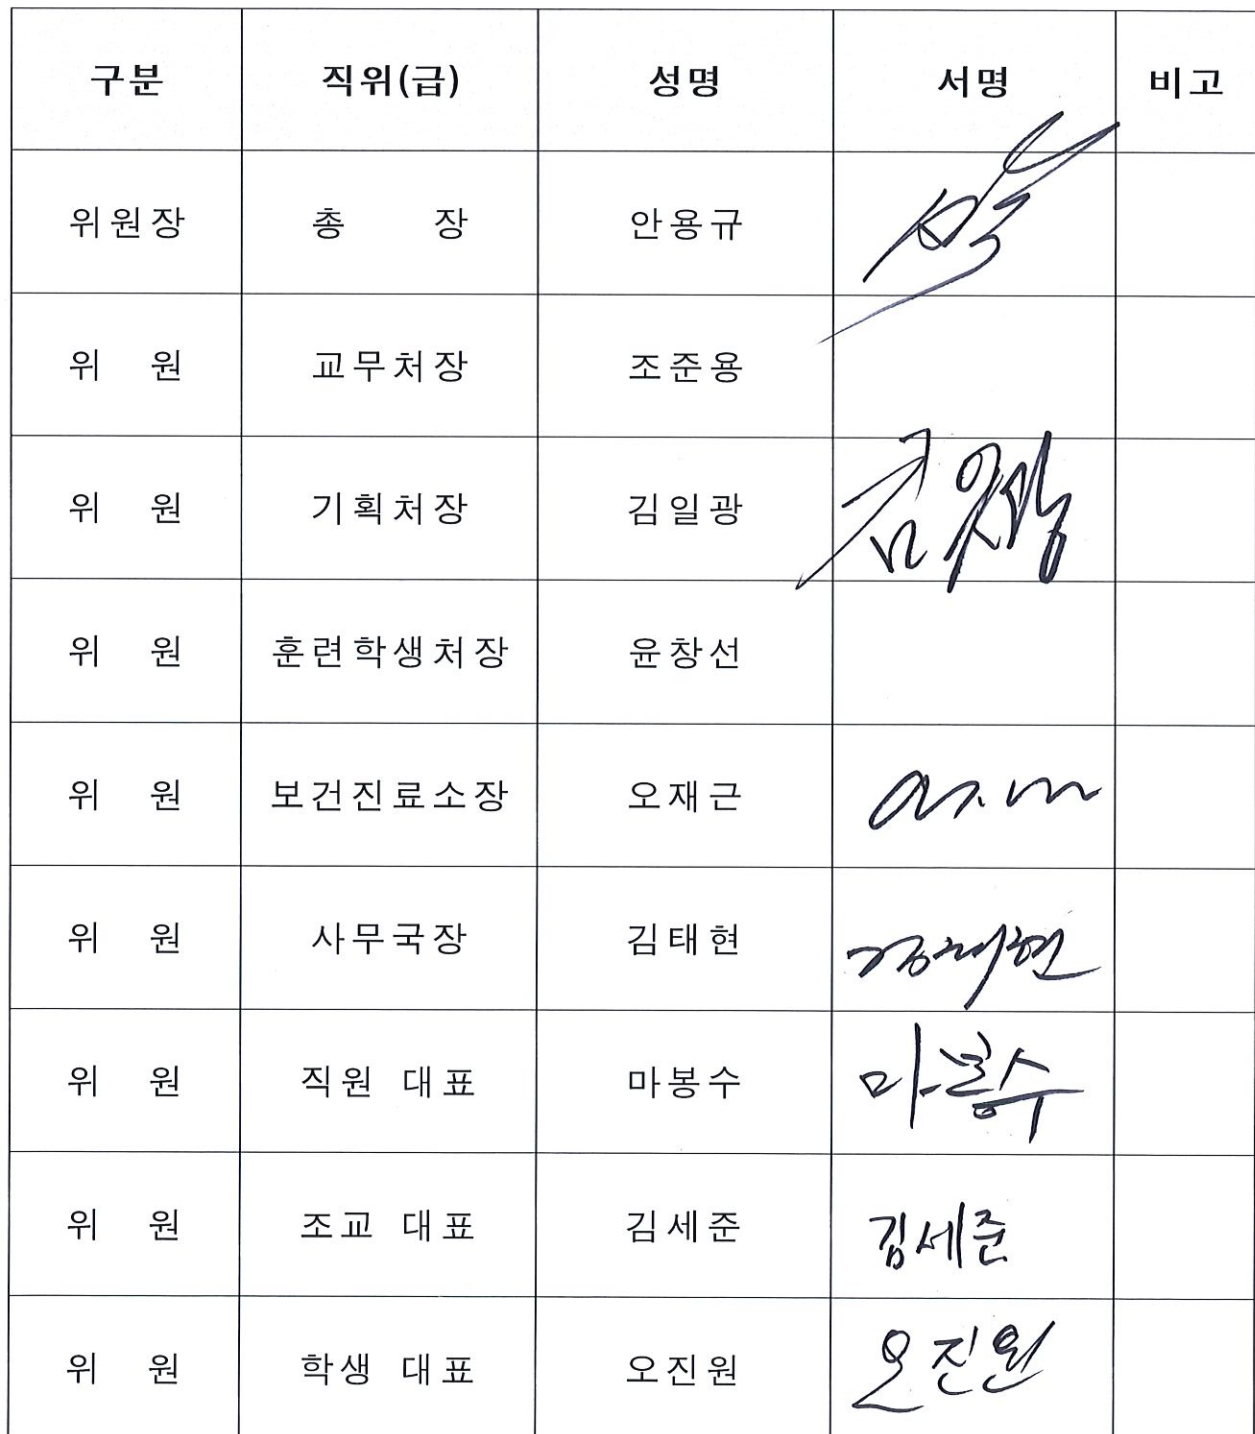 구분 직위(급) 성명 서명 비고
위원장 총 장 안용규
위 원 교무처장 조준용
위 원 기획처장 김일광 김일광
위 원 훈련학생처장 윤창선
위 원 보건진료소장 오재근
위 원 사무국장 김태현 김태현
위 원 직원 대표 마봉수 마봉수
위 원 조교 대표 김세준 김세준
위 원 학생 대표 오진원 오진원